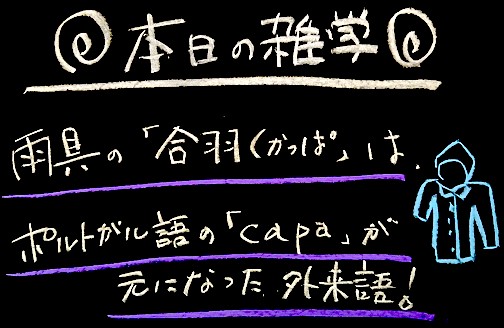 本日の雑学
雨具の「合羽(かっぱ」は、
ポルトガル語の「capa」が
元になった外来語!